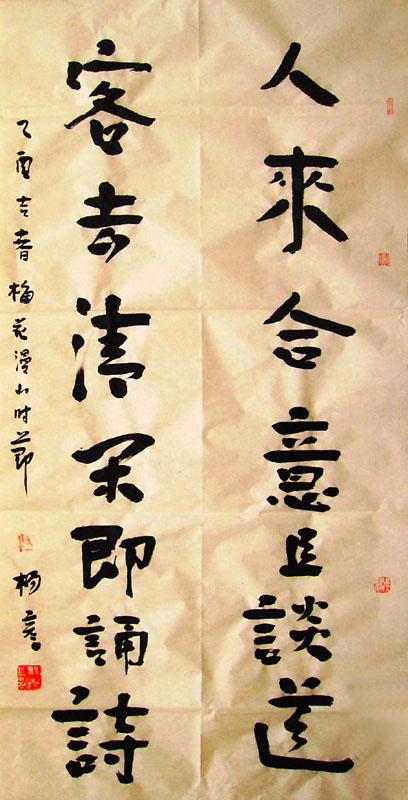 人來合意且談道
客去清閑即誦詩
乙酉吉春梅花漫山时節
楊彥